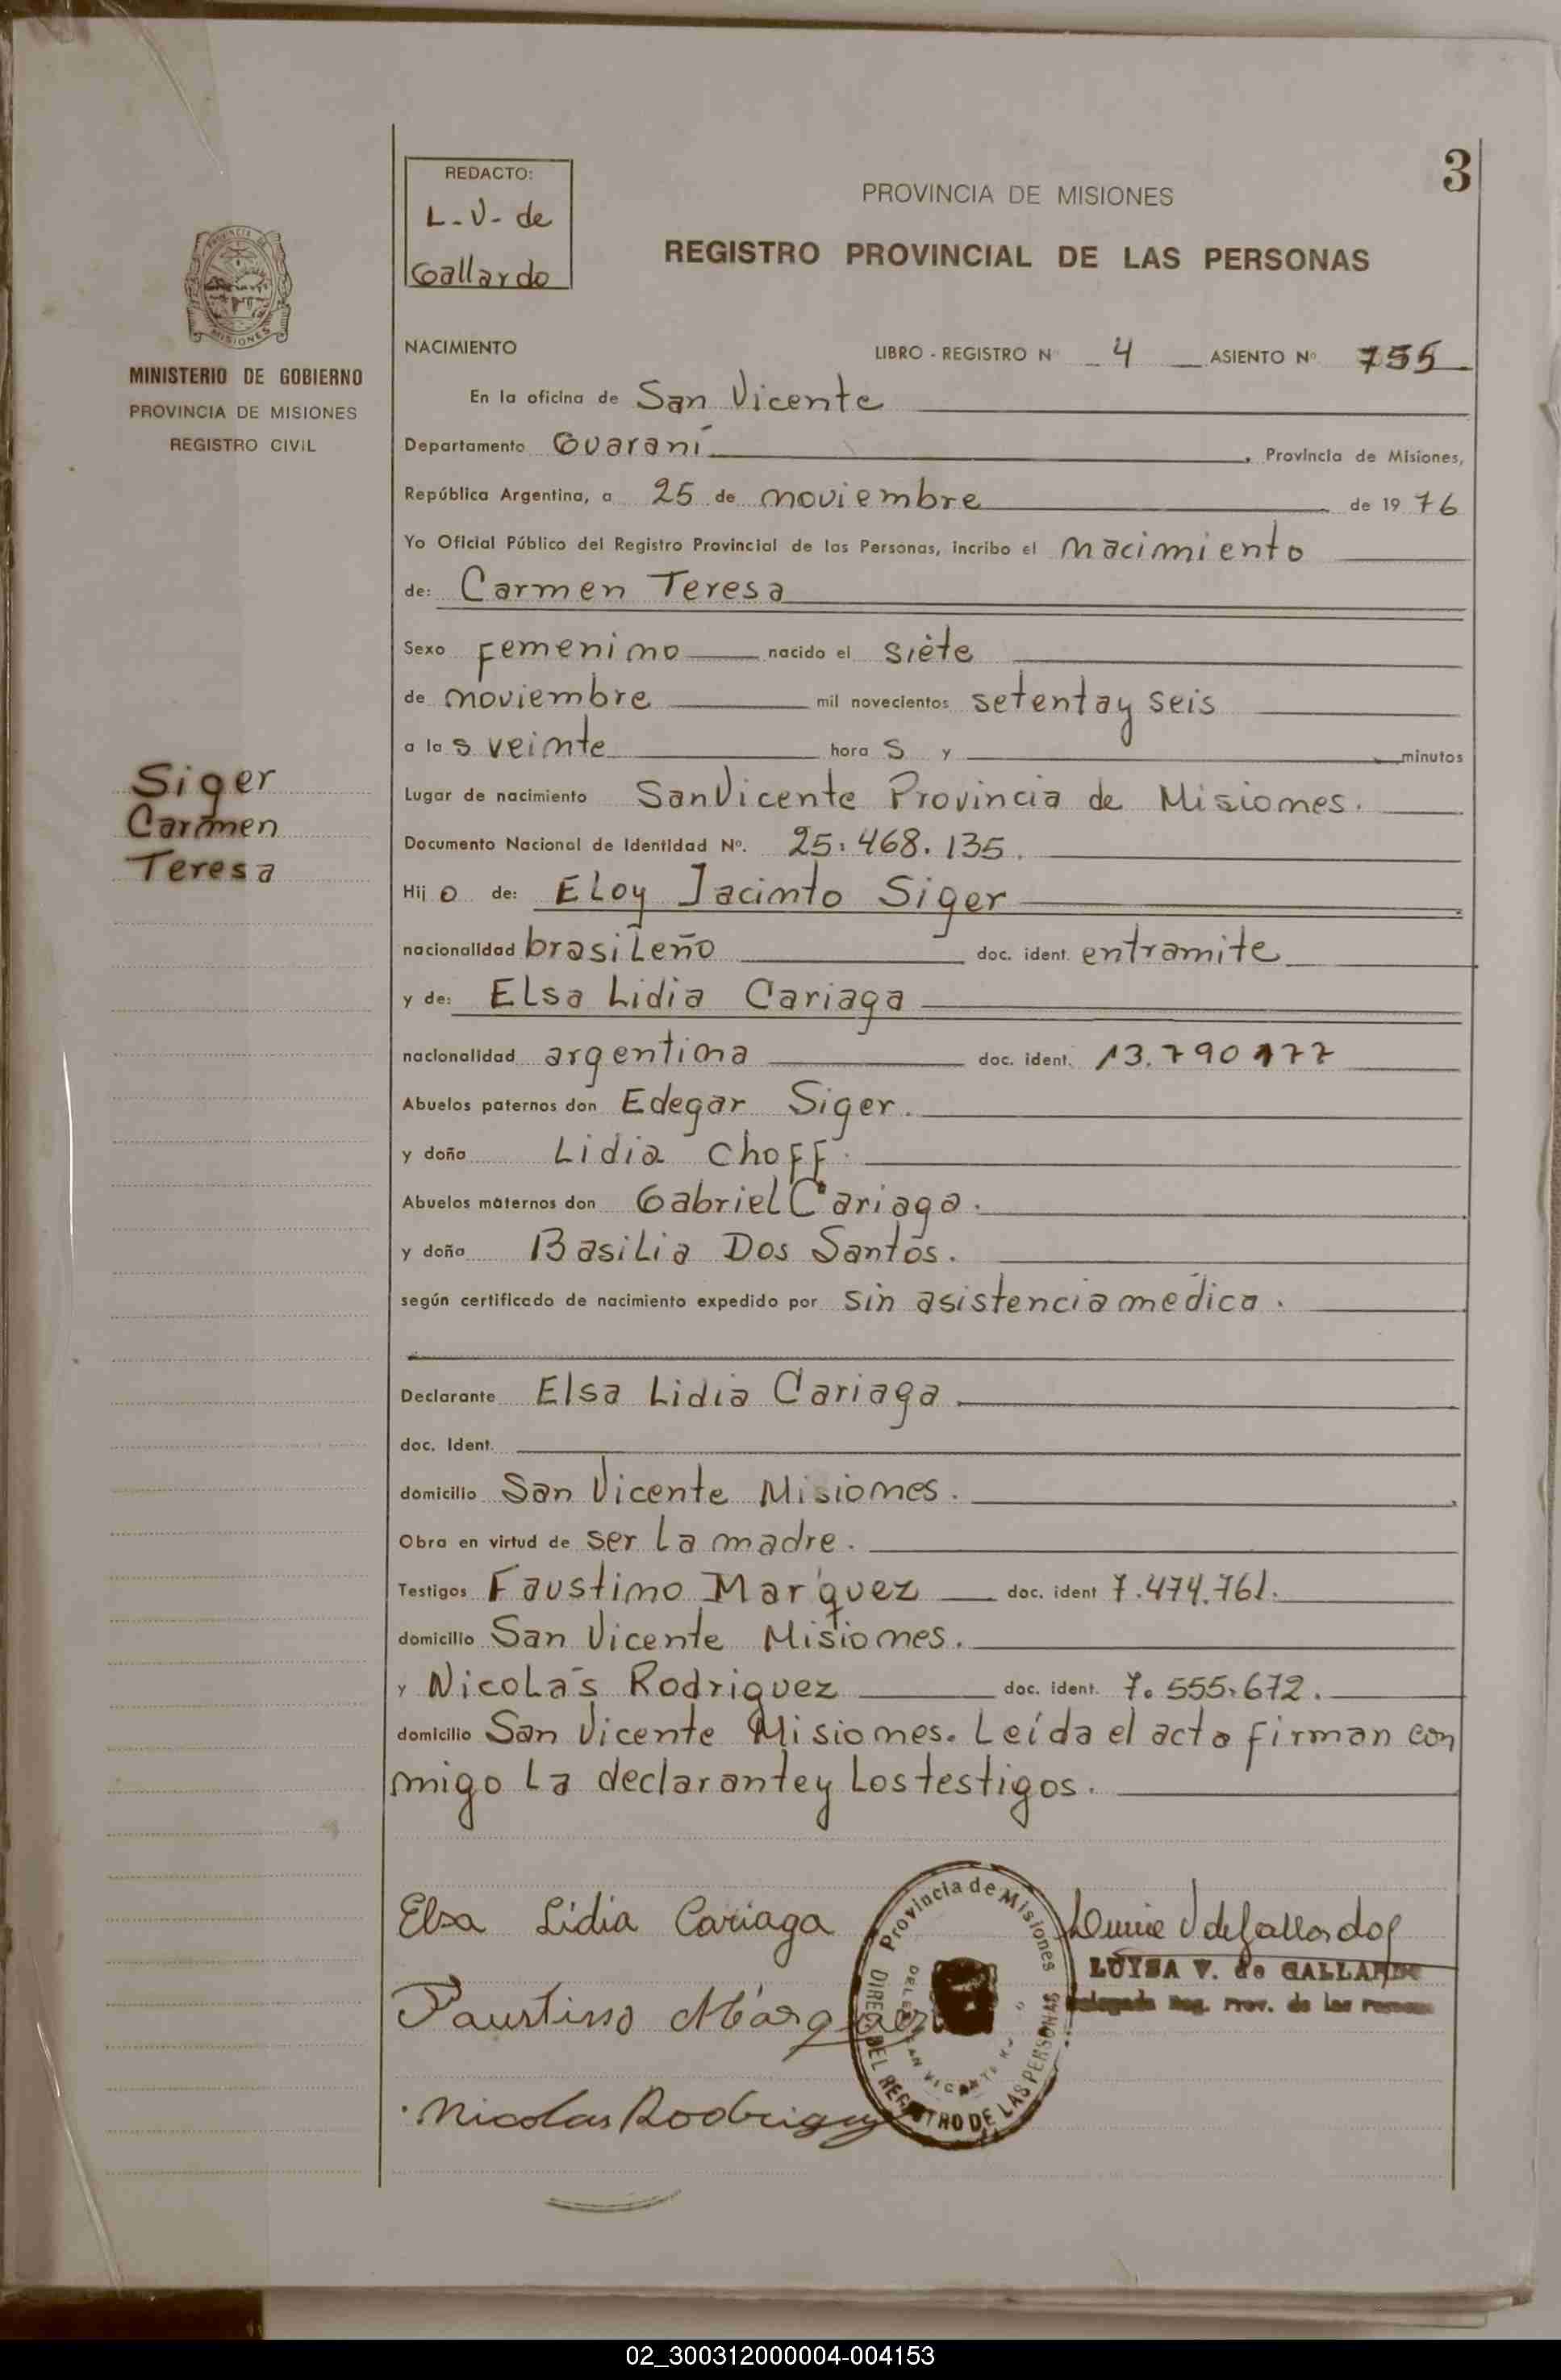 3
REDACTO:
L-V- de
Gallardo
PROVINCIA DE MISIONES
REGISTRO PROVINCIAL DE LAS PERSONAS
PROVINCIA DE
MISIONES
MINISTERIO DE GOBIERNO
PROVINCIA DE MISIONES
REGISTRO CIVIL
NACIMIENTO LIBRO - REGISTRO N° 4 ASIENTO N° 755
En la oficina de San Vicente
Departamento Guaraní , Provincia de Misiones,
República Argentina, a 25 de noviembre de 19 76
Yo Oficial Público del Registro Provincial de las Personas, incribo el nacimiento
de: Carmen Teresa
Sexo femenino nacido el siete
de noviembre mil novecientos setenta y seis
a las veinte horas y minutos
Siger
Carmen
Teresa
Lugar de nacimiento San Vicente Provincia de Misiones.
Documento Nacional de Identidad N°. 25.468.135.
Hijo de: Eloy Jacinto Siger
nacionalidad brasileño doc. ident. entramite
y de: Elsa Lidia Cariaga
nacionalidad argentina doc. ident. 13.790177
Abuelos paternos don Edegar Siger.
y doña Lidia Choff.
Abuelos maternos don Gabriel Cariaga.
y doña Basilia Dos Santos.
según certificado de nacimiento expedido por sin asistencia médica.
Declarante Elsa Lidia Cariaga
doc. Ident.
domicilio San Vicente Misiones.
Obra en virtud de ser la madre.
Testigos Faustino Marquez doc. ident 7.474.761.
domicilio San Vicente Misiones.
y Nicolás Rodriguez doc. ident. 7.555.672.
domicilio San Vicente Misiones. Leída el acta firman con
migo la declarante y los testigos.
Elsa Lidia Cariaga
Faustino Márquez
Nicolas Rodriguez
Provincia de Misiones
DIREC. DEL REGISTRO DE LAS PERSONAS
SAN VICENTE
LUISA V. de GALLARDO
Delegada Reg. Prov. de las Personas
02_300312000004-004153